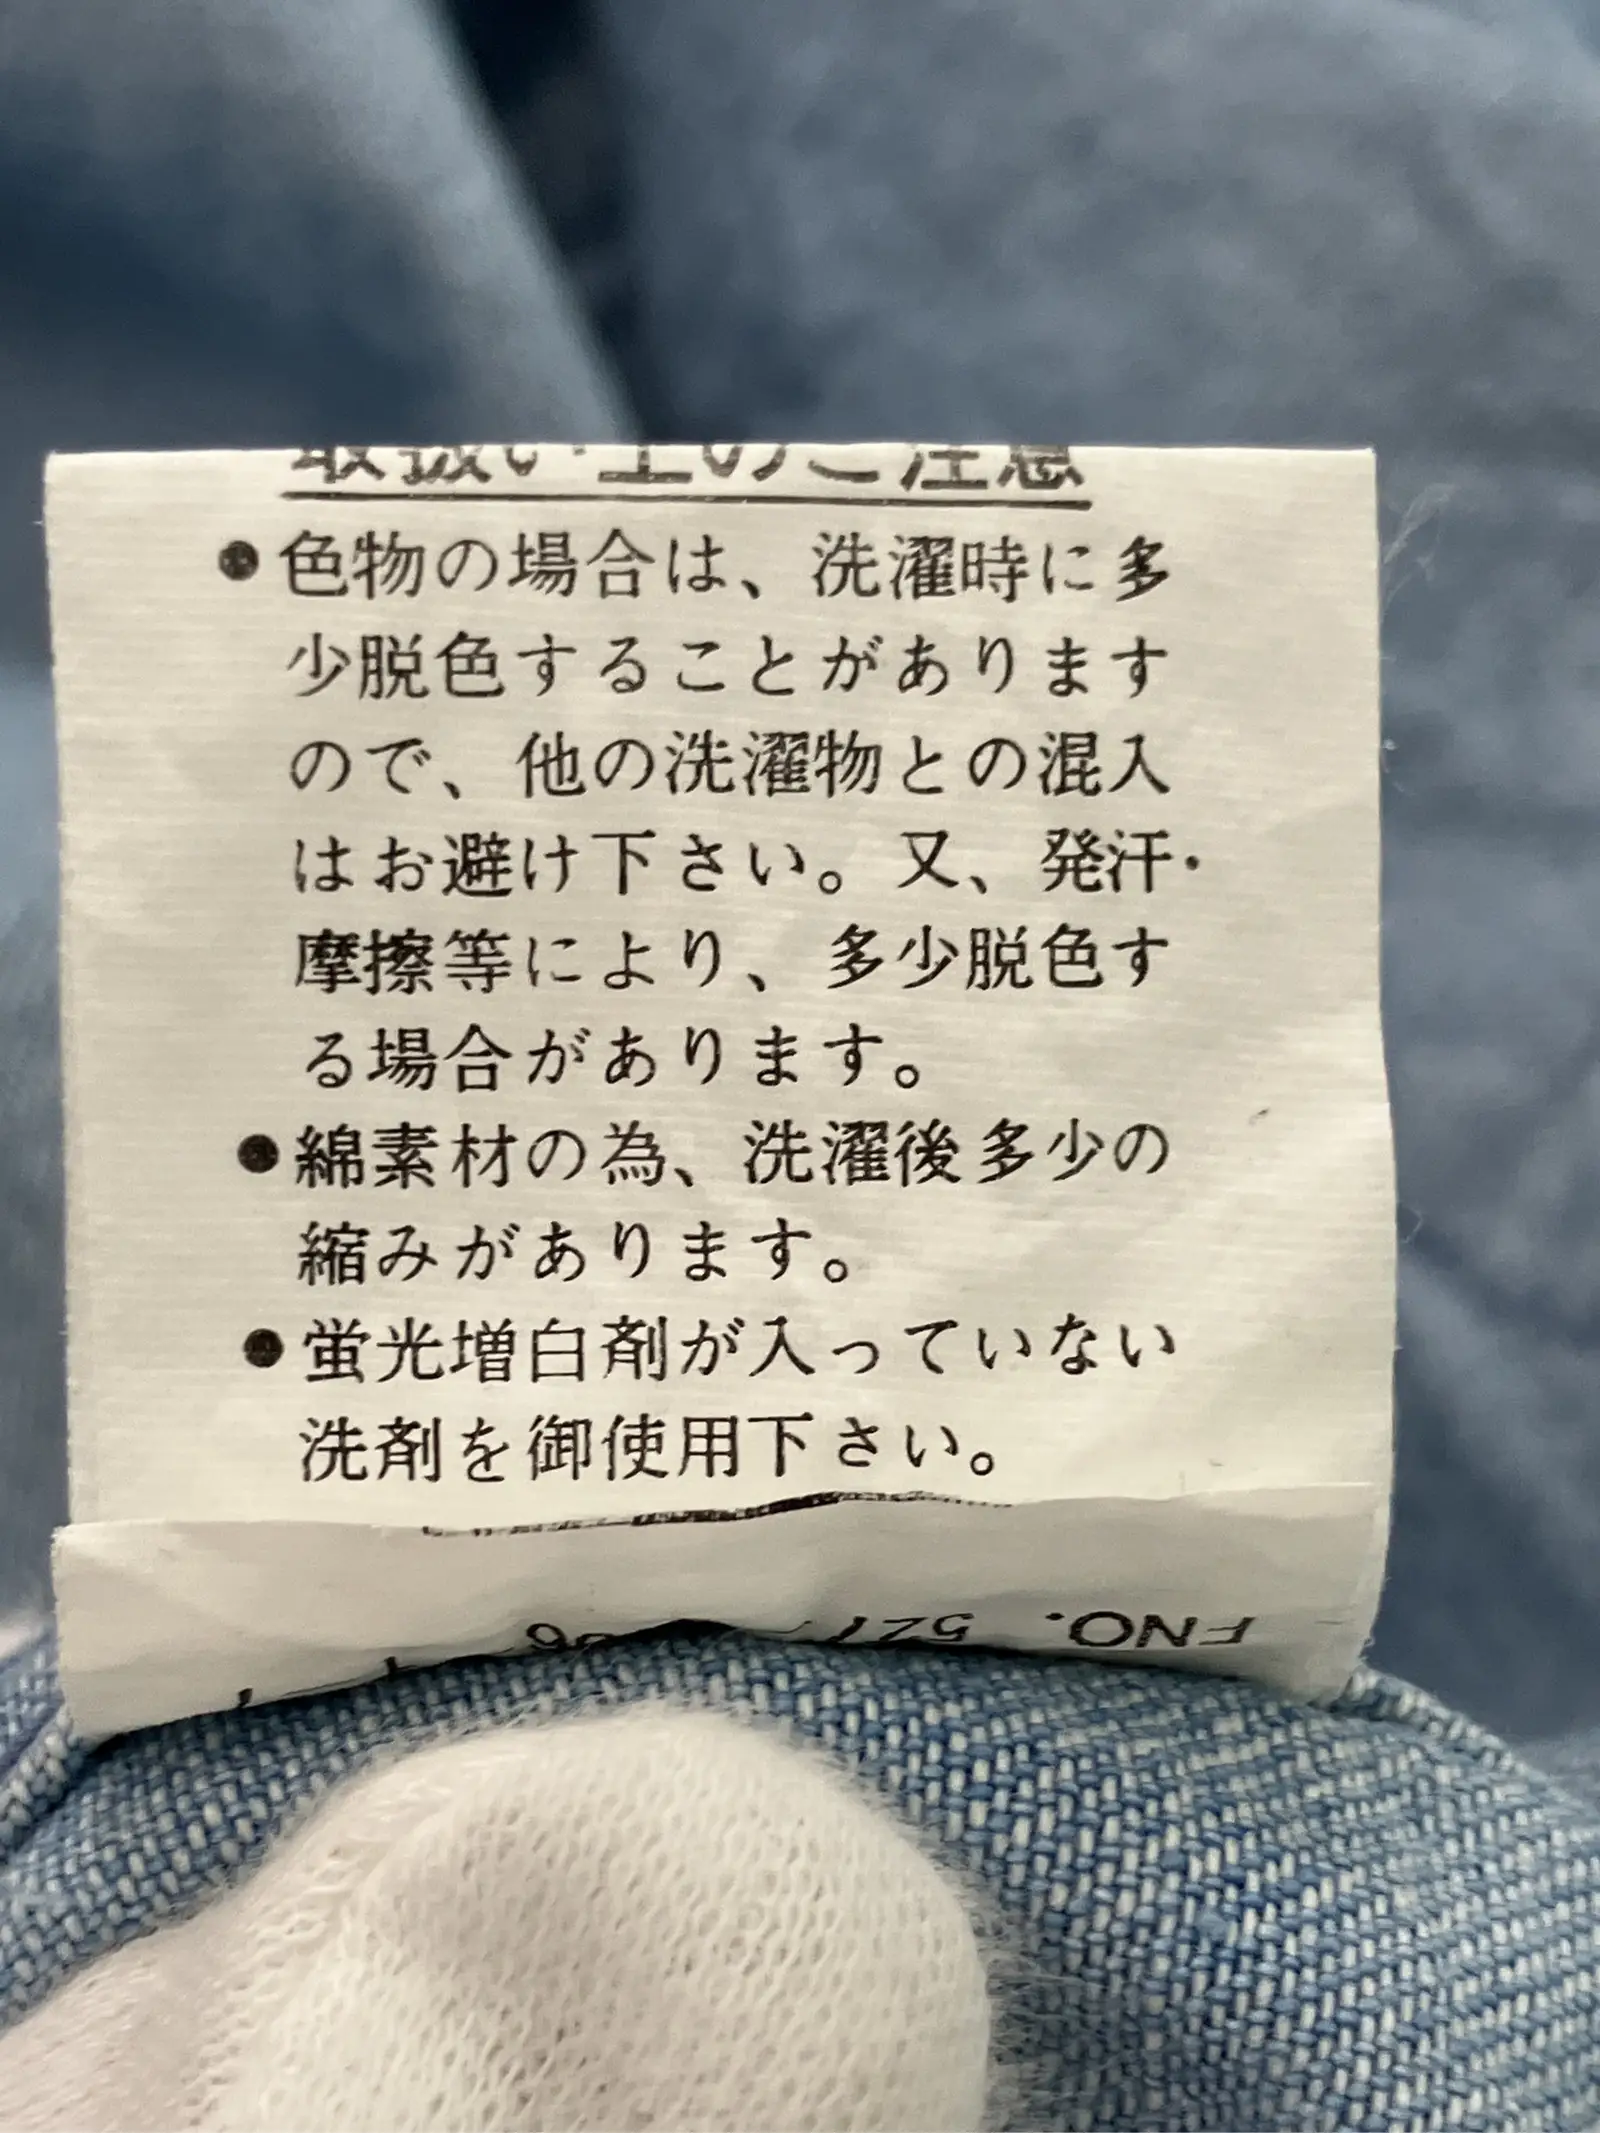 取扱い上のご注意
●色物の場合は、洗濯時に多
少脱色することがあります
ので、他の洗濯物との混入
はお避け下さい。又、発汗・
摩擦等により、多少脱色す
る場合があります。
●綿素材の為、洗濯後多少の
縮みがあります。
●蛍光増白剤が入っていない
洗剤を御使用下さい。
FNO.